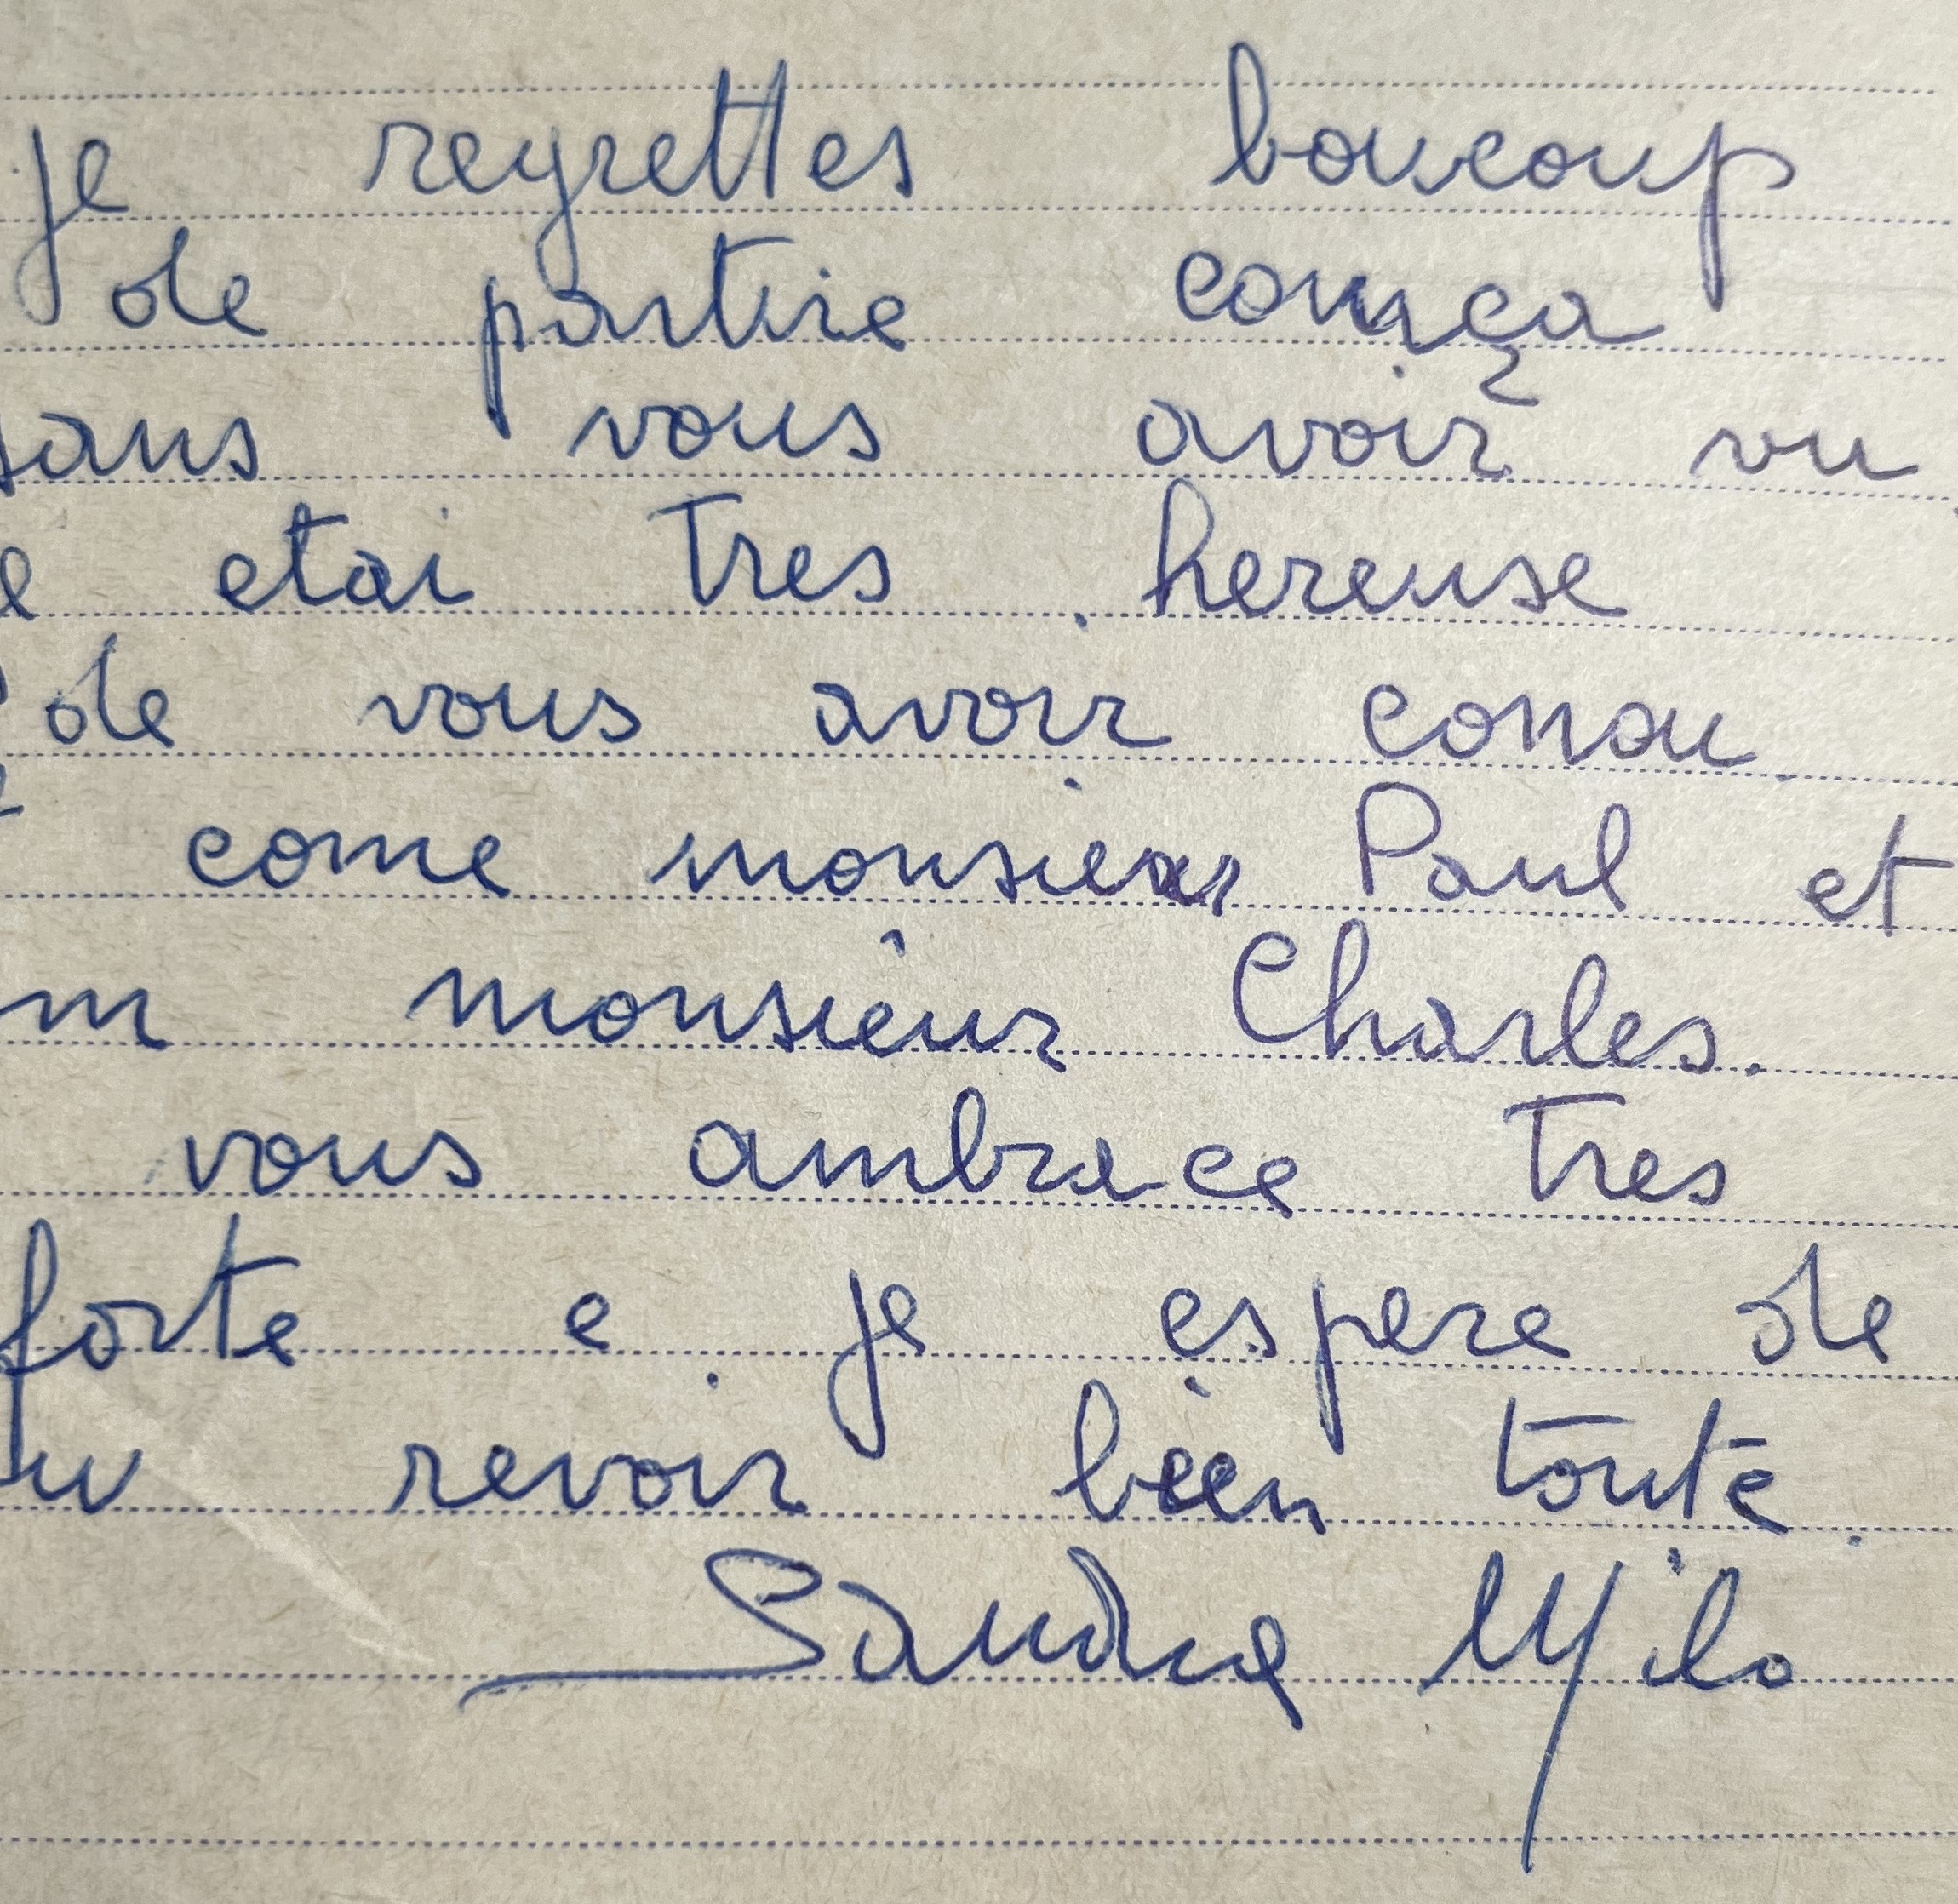 je regrettes boucoup
de partire comça
sans vous avoir vu
e etai tres hereuse
de vous avoir conou
come monsieur Paul et
m monsieur Charles.
vous ambrace tres
forte e je espere de
revoir bien toute
Sandra Milo